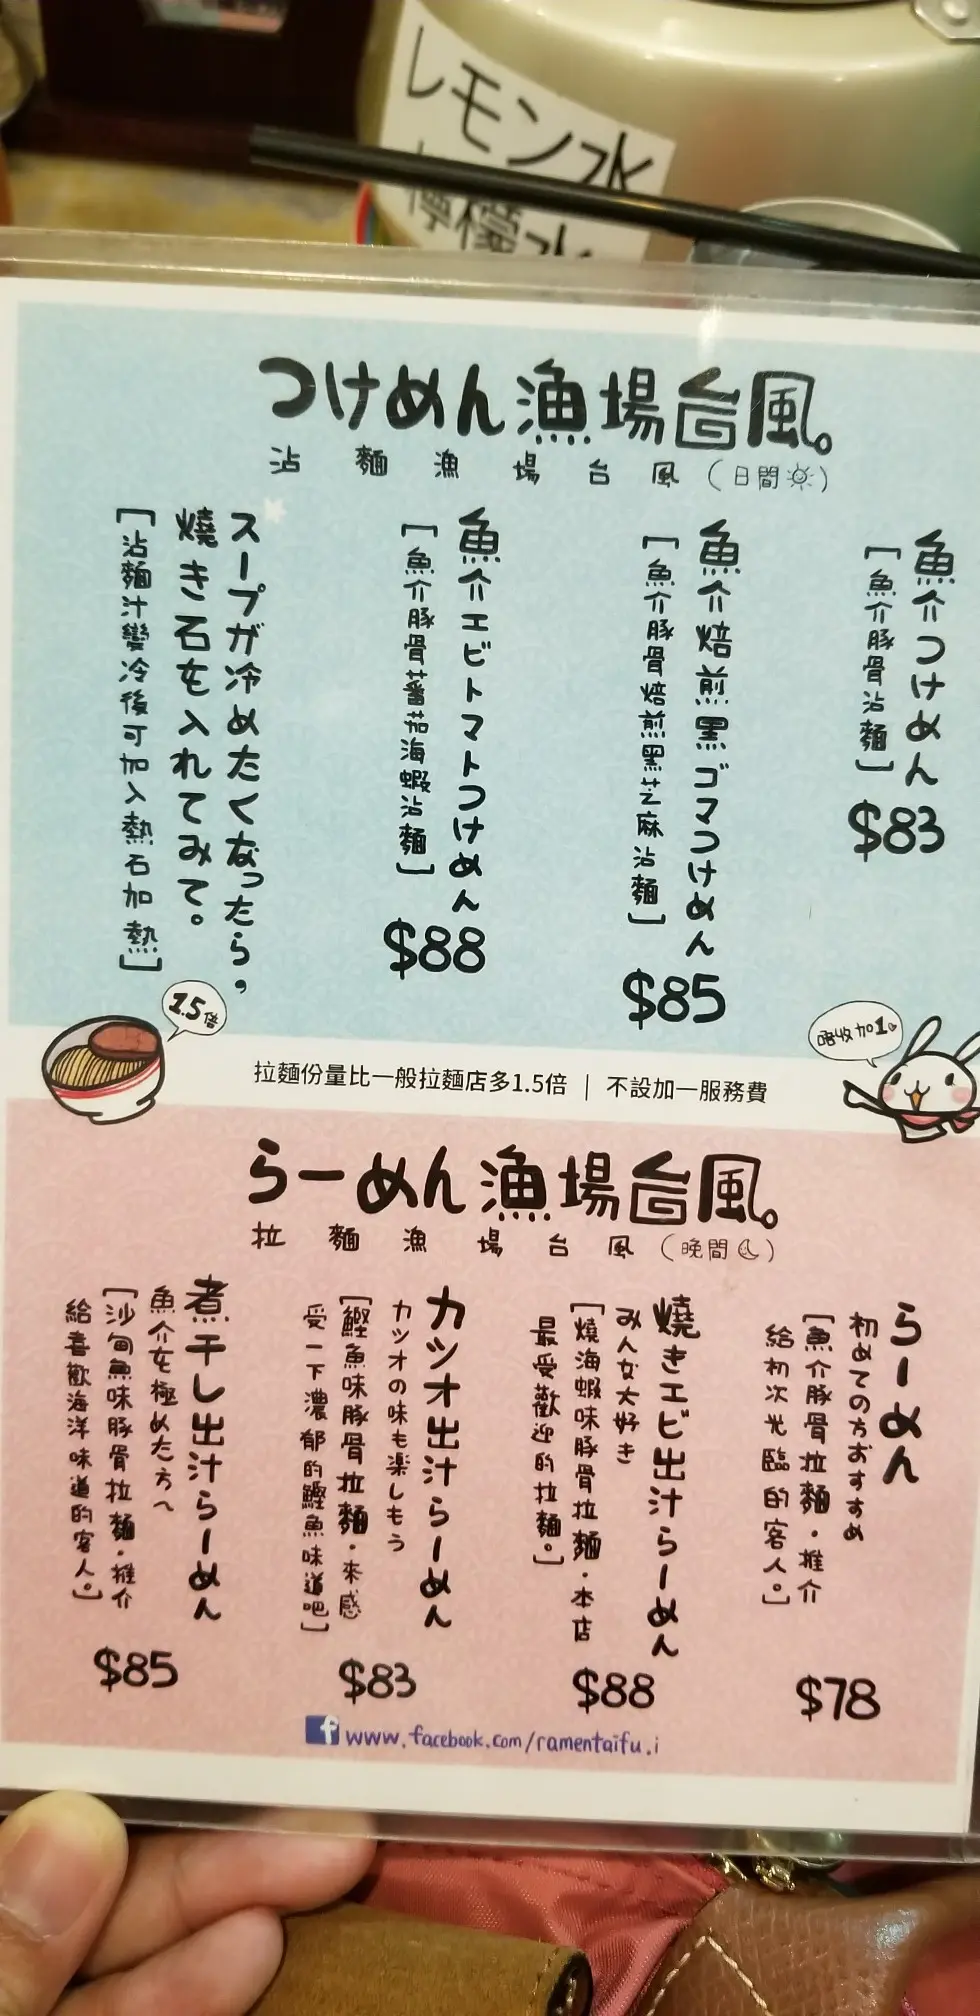 レモン水
檸檬水
つけめん漁場台風。
沾麵漁場台風(日間)
魚介つけめん
[魚介豚骨沾麵]
$83
魚介焙煎黒ゴマつけめん
[魚介豚骨焙煎黑芝麻沾麵]
$85
魚介エビトマトつけめん
[魚介豚骨蕃茄海蝦沾麵]
$88
スープが冷めたくなったら,
焼き石を入れてみて。
[沾麵汁變冷後可加入熱石加熱]
1.5倍
唔收加1。
拉麵份量比一般拉麵店多1.5倍 | 不設加一服務費
らーめん漁場台風。
拉麵漁場台風(晚間)
らーめん
初めての方おすすめ
[魚介豚骨拉麵・推介
給初次光臨的客人。]
$78
燒きエビ出汁らーめん
みんな大好き
[燒海蝦味豚骨拉麵・本店
最受歡迎的拉麵。]
$88
カツオ出汁らーめん
カツオの味も楽しもう
[鰹魚味豚骨拉麵・來感
受一下濃郁的鰹魚味道吧]
$83
煮干し出汁らーめん
魚介を極めた方へ
[沙甸魚味豚骨拉麵・推介
給喜歡海洋味道的客人。]
$85
f www.facebook.com/ramentaifu.i